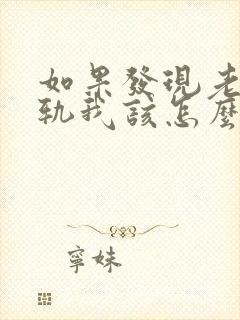 如果發現老
軌我該怎麼
寧妹